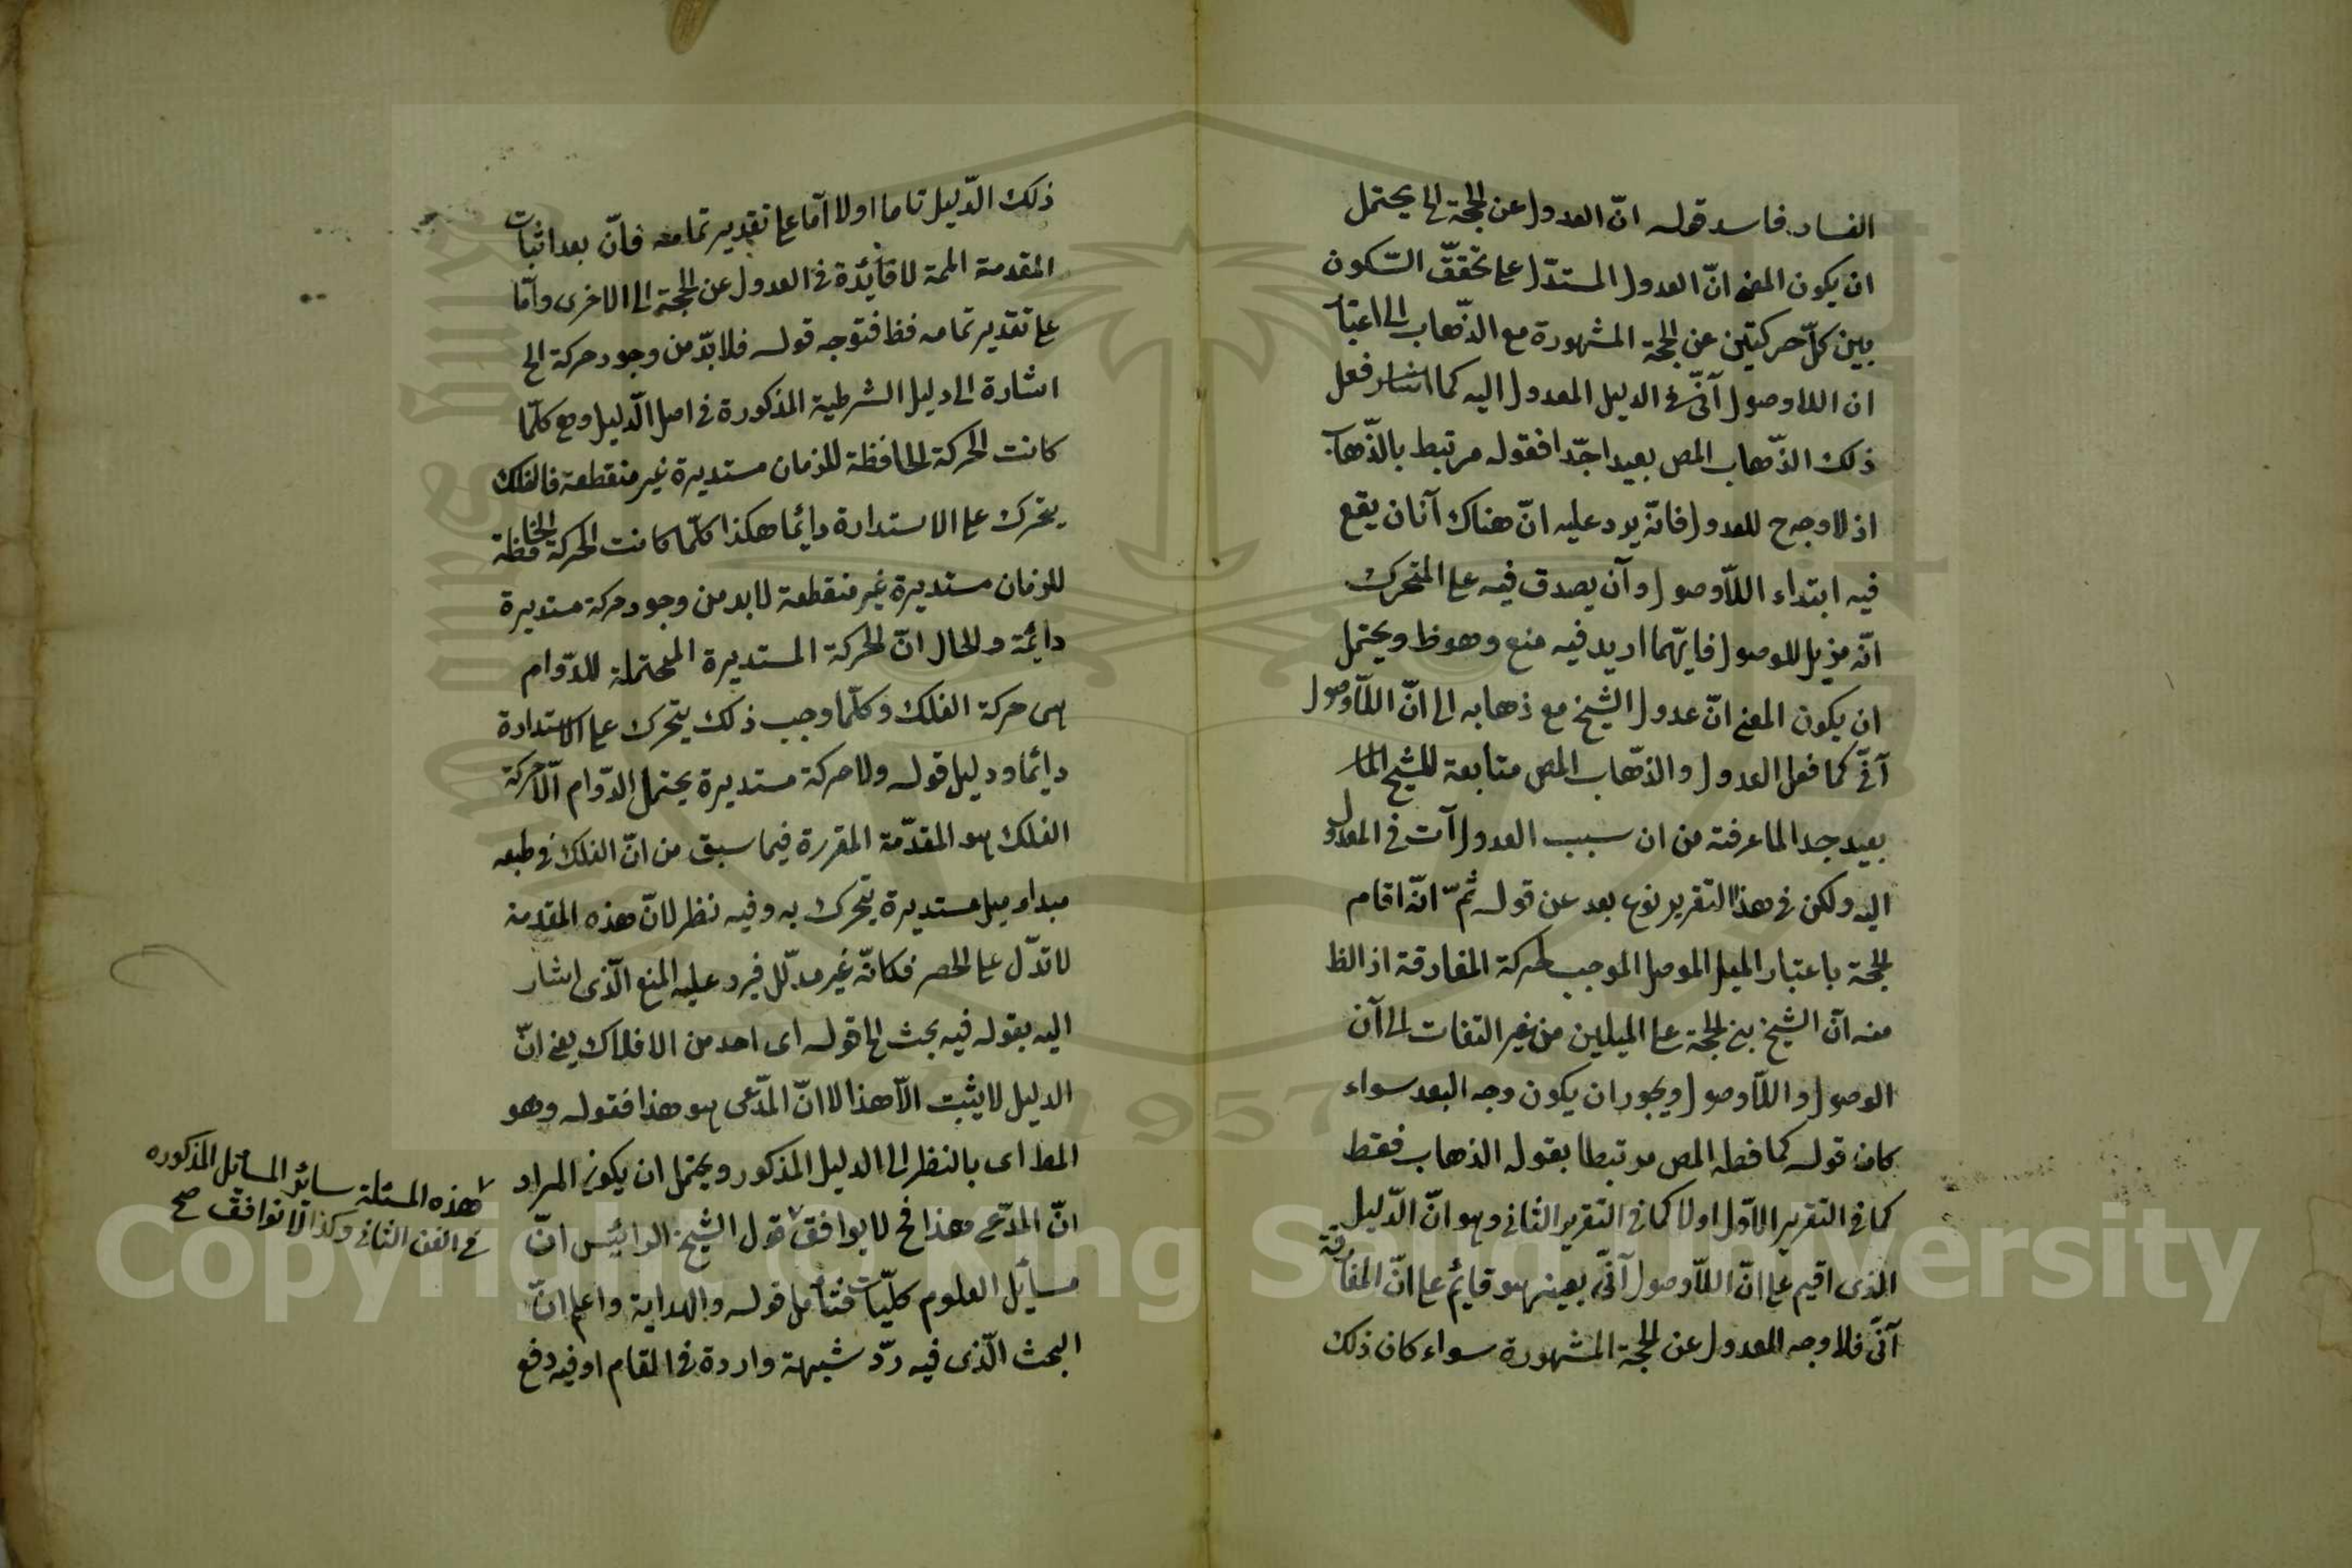 الفساد فاسد قوله انّ العدول عن الحجة الى يحتمل
ان يكون المعنى انّ العدول المستدّل على تحقّق السّكون
بين كلّ حركتين عن الحجة المشهورة مع الذّهاب الى اعتبار
ان اللاوصول آنّى فى الدليل المعدول اليه كما اشار فعل
ذلك الذّهاب المص بعيد اجدّا فقوله مرتبط بالذّهاب
اذ لا وجه ح للعدول فانّه يرد عليه انّ هناك آنان يقع
فيه ابتداء اللّاوصول وآن يصدق فيه على المتحرك
انّه مزيل للوصول فايّهما اريد فيه منع وهو ظ ويحتمل
ان يكون المعنى انّ عدول الشيخ مع ذهابه الى انّ اللّاوصول
آنّى كما فعل العدول والذّهاب المص متابعة للشيخ
بعيد جدا لما عرفته من ان سبب العدول آت فى المعدول
اليه ولكن فى هذا التقرير نوع بعد عن قوله ثمّ انّه اقام
الحجة باعتبار الميل الموصل الموجب لحركة المفارقة اذ الظ
منه انّ الشيخ بنى الحجة على الميلين من غير التفات الى آن
الوصول واللّاوصول ويجوز ان يكون وجه البعد سواء
كان قوله كما فعله المص مرتبطا بقوله الذهاب فقط
كما فى التقرير الاوّل اولا كما فى التقرير الثانى وهو انّ الدّليل
الذى اقيم على انّ اللّاوصول آنّى بعينه هو قايم على انّ المفارقة
آنّى فلا وجه للعدول عن الحجة المشهورة سواء كان ذلك
ذلك الدّليل تاما اولا امّا على تقدير تمامه فانّ بعد اثبات
المقدمة الممة لا فائدة فى العدول عن الحجة الى الاخرى وامّا
على تقدير تمامه فظ فتوجه قوله فلا بدّ من وجود حركة الخ
اشارة الى دليل الشرطية المذكورة فى اصل الدّليل وهى كلّما
كانت الحركة الحافظة للزمان مستديرة غير منقطعة فالفلك
يتحرك على الاستدارة دايما هكذا كلّما كانت الحركة الحافظة
للزمان مستديرة غير منقطعة لا بد من وجود حركة مستديرة
دايمة والحال انّ الحركة المستديرة المحتملة للدّوام
هى حركة الفلك وكلّما وجب ذلك يتحرك على الاستدارة
دايما ودليل قوله ولا حركة مستديرة يحتمل الدّوام الّا حركة
الفلك هو المقدّمة المقررة فيما سبق من انّ الفلك فى طبعه
مبداء ميل مستديرة يتحرك به وفيه نظر لانّ هذه المقدمة
لا تدّل على الحصر فكانّه غير مدلّل فيرد عليه المنع الّذى اشار
اليه بقوله فيه بحث الخ قوله اى احد من الافلاك يعنى انّ
الدليل لا يثبت الّا هذا لا انّ المدّعى هو هذا فقوله وهو
المط اى بالنظر الى الدليل المذكور ويحتمل ان يكون المراد
انّ المدّعى هذا فح لا يوافق قول الشيخ الرائيس انّ
مسايل العلوم كلّيات فتأمل قوله والهداية واعلم انّ
البحث الّذى فيه ردّ شبهة واردة فى المقام او فيه دفع
هذه المسئلة سائر المسائل المذكوره
فى الفن الثانى وكذا لا توافق صح
Copyright © King Saud University
1957